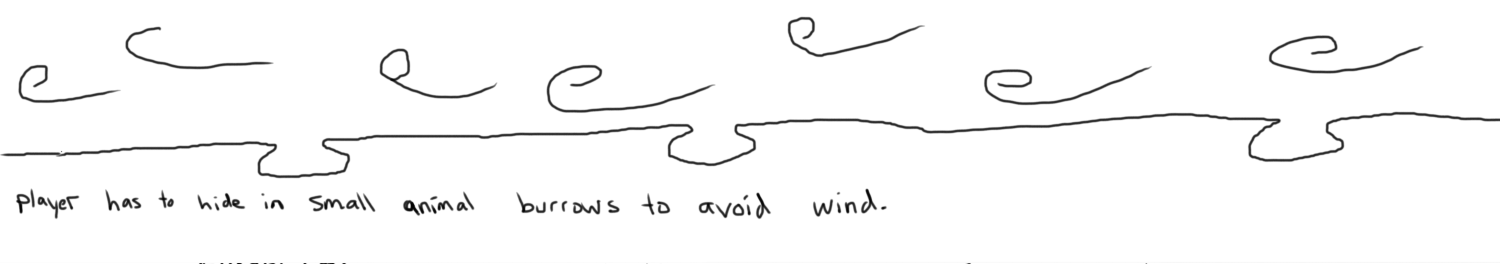 player has to hide in small animal burrows to avoid wind.